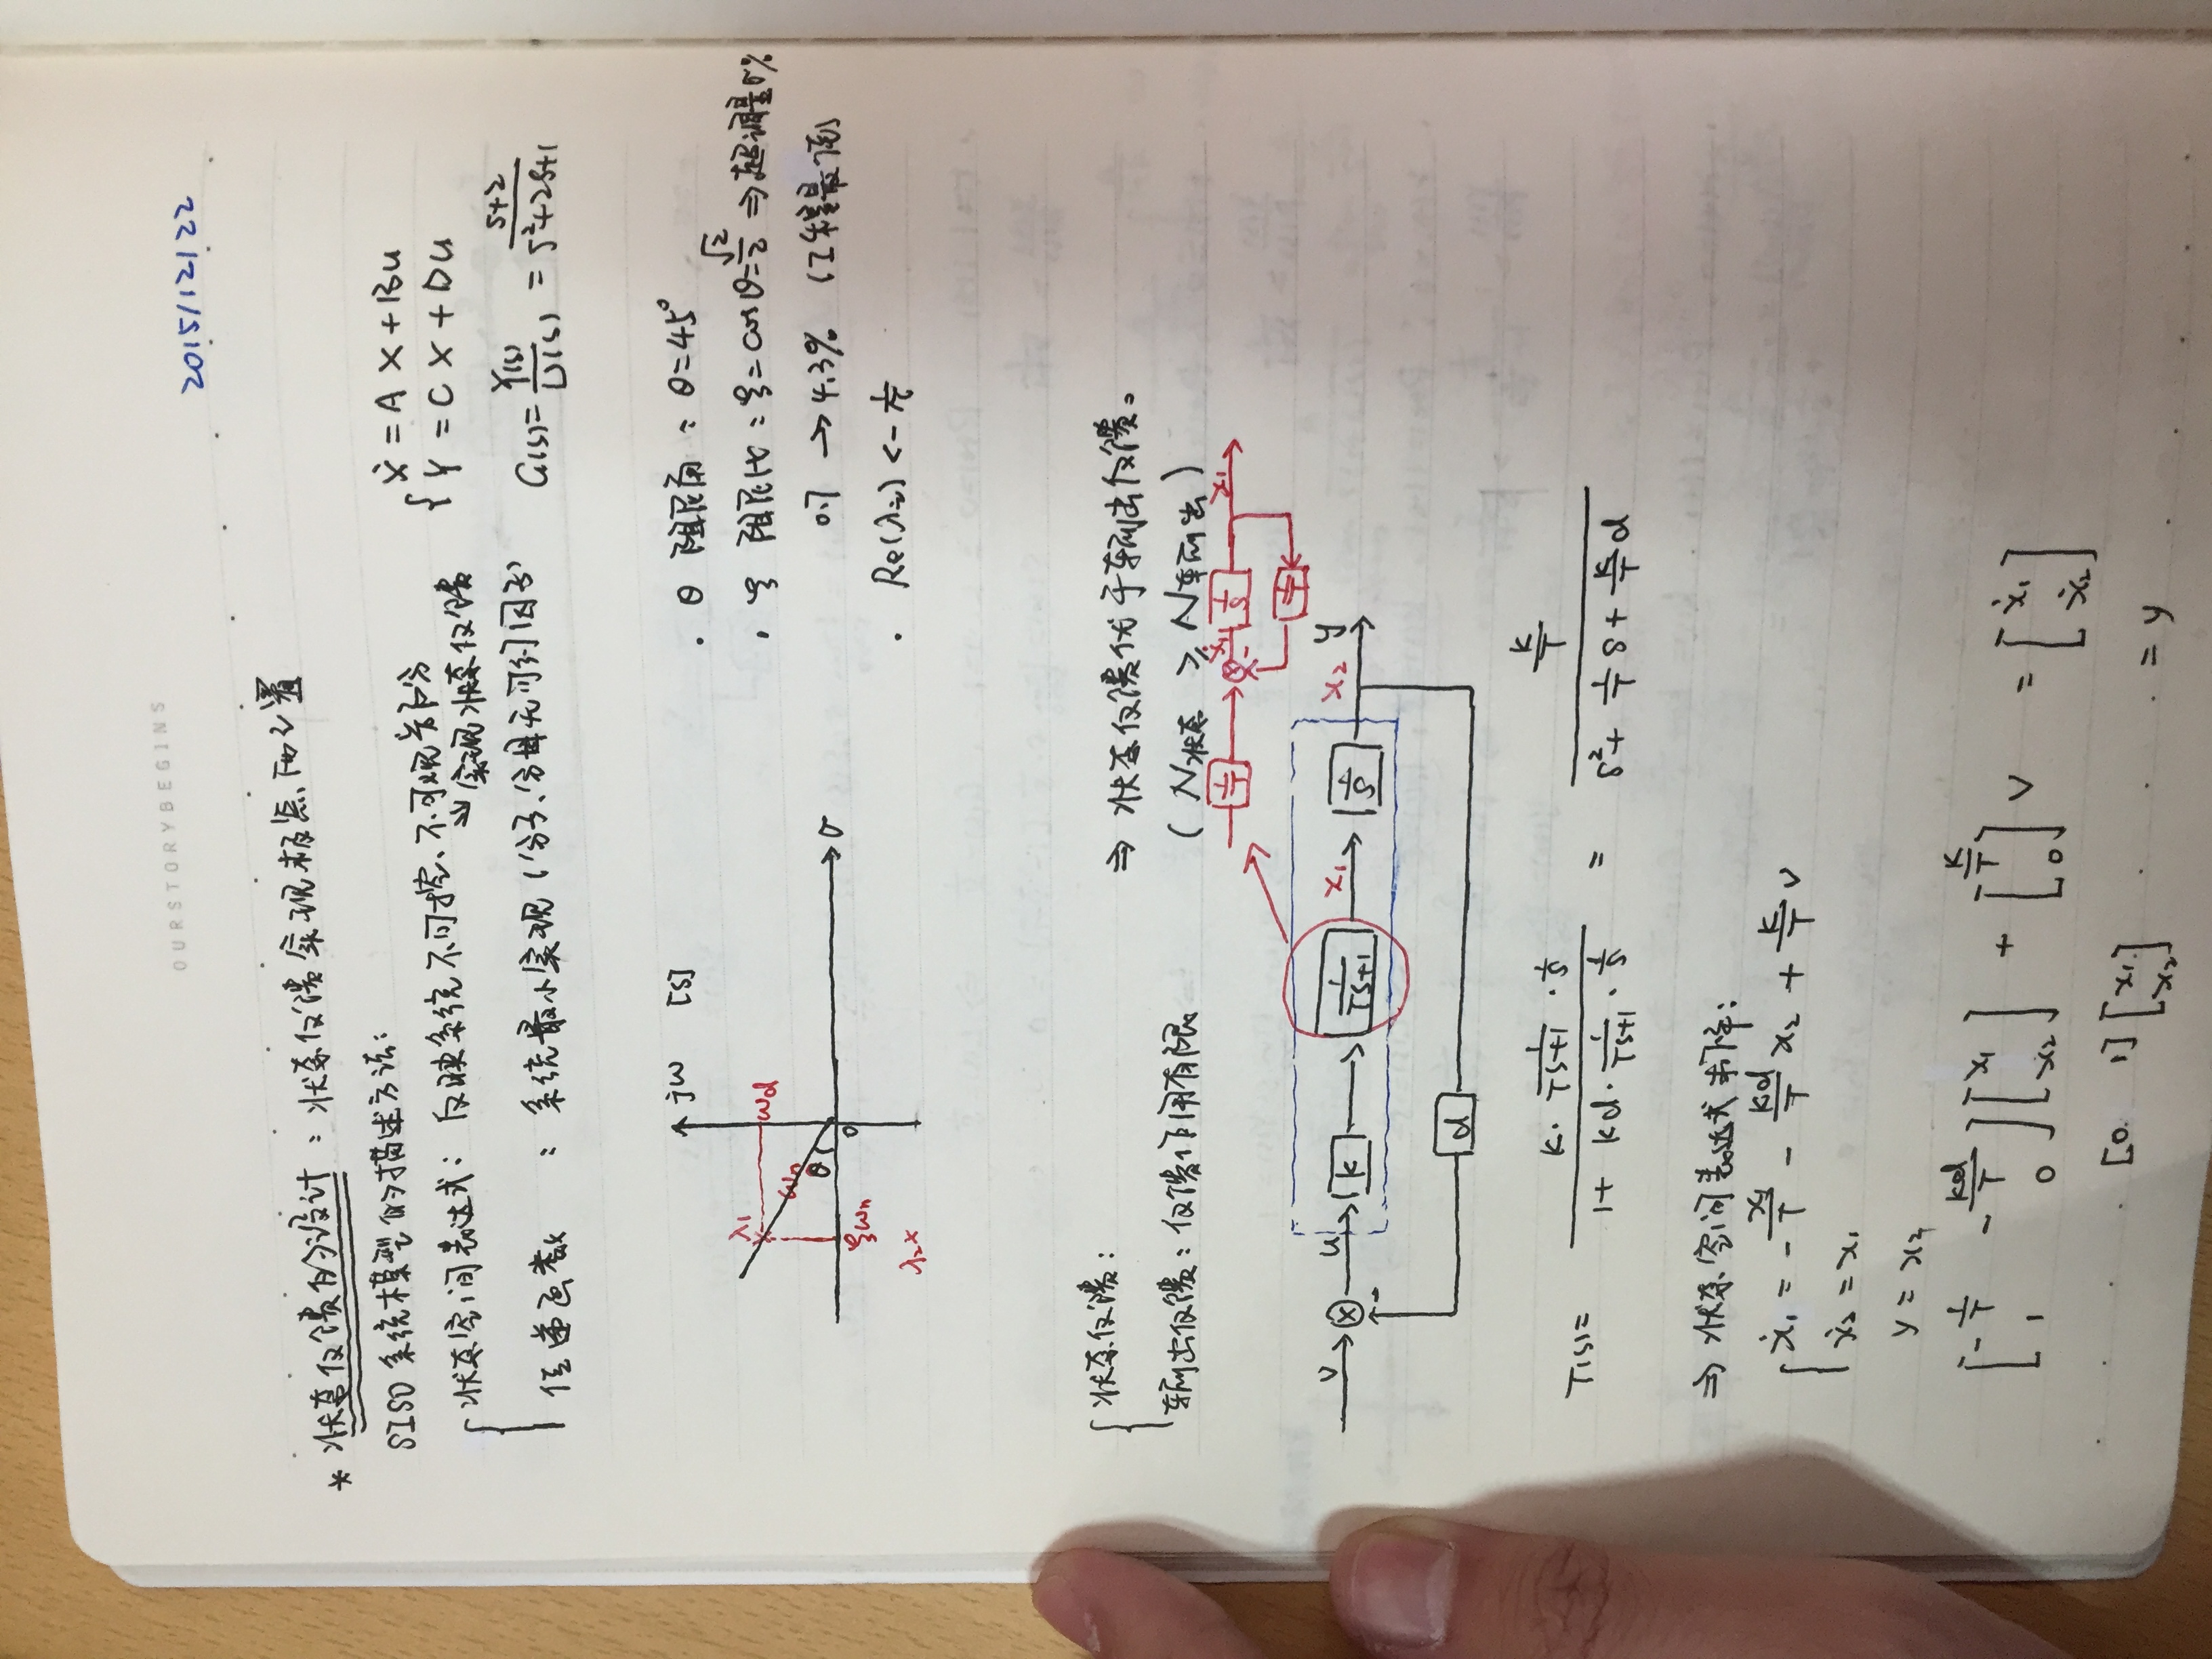 OURSTORYBEGINS
2015/12/22
* 状态反馈的设计：状态反馈实现极点配置
SISO 系统模型的描述方法：
状态空间表达式：反映系统不可控、不可观部分
→ 实现状态反馈
ẋ = A X + Bu
Y = C X + Du
传递函数 ：系统最小实现（分子、分母无可约因子）
G(s) = Y(s)/U(s) = (s+2)/(s²+2s+1)
jω [S]
λ₁
ωd
ωn
θ
σ
0
ξωn
λ₂×
· θ 阻尼角：θ=45°
· ξ 阻尼比：ξ = cosθ = √2/2 ⇒ 超调量σ%
0.7 → 4.3% （工程最佳）
· Re(λi) < -1/τ
状态反馈：
输出反馈：反馈作用有限
⇒ 状态反馈优于输出反馈。
（N状态 ≥ N输出）
1/T ẋ₁ - 1/S x₁
1/T
v u k 1/(Ts+1) x₁ 1/S x₂ y
-
d
T(s) = (k · 1/(Ts+1) · 1/s)/(1 + kd · 1/(Ts+1) · 1/s) = (k/T)/(s² + 1/T s + k/T d)
⇒ 状态空间表达式求解：
ẋ₁ = -x₁/T - kd/T x₂ + k/T v
ẋ₂ = x₁
y = x₂
[-1/T -kd/T; 1 0] [x₁; x₂] + [k/T; 0] v = [ẋ₁; ẋ₂]
[0 1] [x₁; x₂] = y